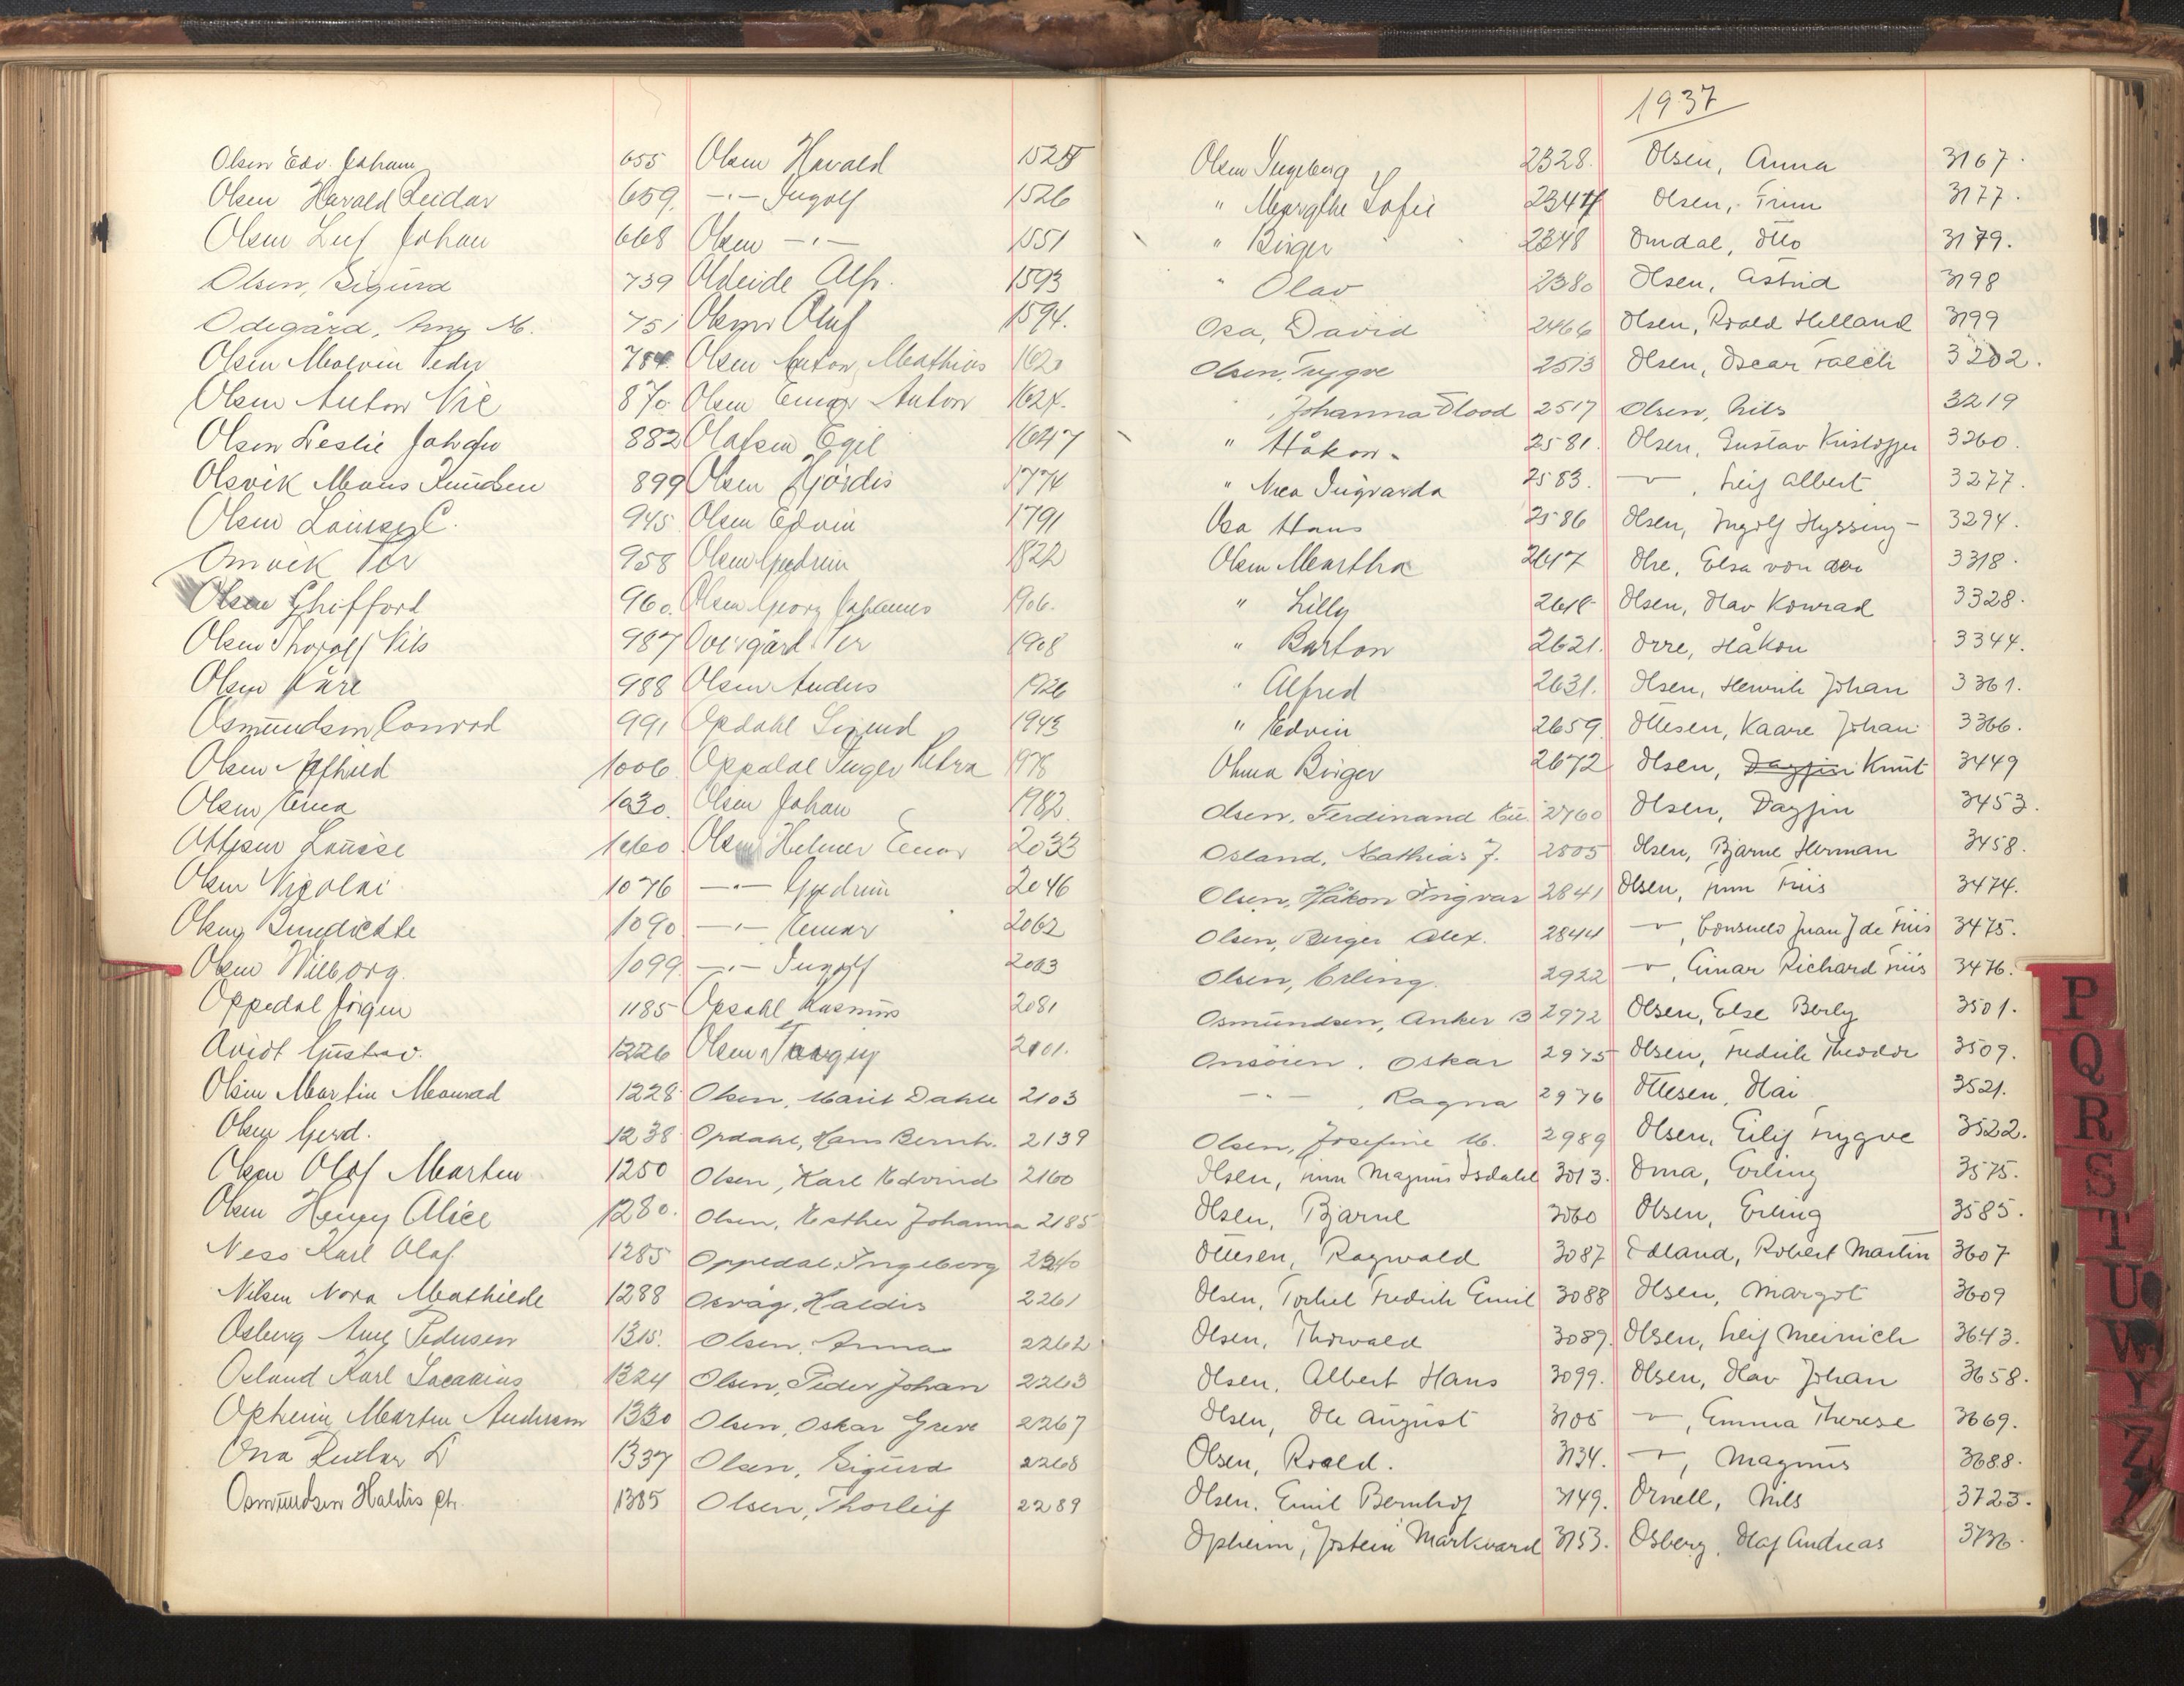 Olsen Edv. Johann 655
Olsen Harald Reidar 659.
Olsen Leif Johan 668
Olsen, Sigurd 739
Odegård, M. 751
Olsen Malvin Peder 784.
Olsen Anton Nic 870
Olsen Leslie Johan 882
Olsvik Mons Knudsen 899
Olsen C. 945
Omvik Per 958
Olsen Ghifford 960.
Olsen Thoralf Nils 987
Olsen Kåre 988
Osmundsen Conrad 991
Olsen 1006
Olsen Erna 1030.
Ottesen Louise 1060
Olsen Nicolai 1076
Olsen Benedikte 1090
Olsen Wilborg. 1099
Oppedal Jörgen 1185
Gustav. 1226
Olsen Martin Monrad 1228
Olsen Gerd. 1238
Olsen Olaf Marten 1250
Olsen Henny Alice 1280.
Ness Karl Olaf 1285
Nilsen Nora Mathilde 1288
Osberg Amy Pedersen 1315.
Osland Karl Zacarias 1324
Opheim Marten Andersen 1330
Ona 1337
Osmundsen Haldis 1385
Olsen Harald 1525
—"— Ingolf 1526
Olsen —"— 1551
Oldeide Alfr. 1593
Olsen Oluf 1594.
Olsen Anton Mathias 1620
Olsen Einar Anton 1624.
Olafsen Egil 1647
Olsen Hjördis 1774
Olsen Edvin 1791
Olsen Gudrun 1822
Olsen Georg Johannes 1906.
Overgård Per 1908
Olsen Anders 1926
Opdahl Sigurd 1943
Oppedal Inger Petra 1978
Olsen Johan 1982.
Olsen Helmer Einar 2033
—"— Gudrun 2046
—"— Einar 2062
—"— Ingolf 2063
Opsahl Rasmus 2081
Olsen 2101.
Olsen, Marit Dahle 2103
Opdahl, Hans Bernh. 2139
Olsen, Karl Edvind 2160
Olsen, Esther Johanna 2185
Oppedal, Ingeborg 2240
Osvåg, Haldis 2261
Olsen, Anna 2262
Olsen, Peder Johan 2263
Olsen, Oskar Greve 2267
Olsen, Sigurd 2268
Olsen, Thorleif 2289
Olsen Ingeborg 2328.
" Margthe Sofie 2344
" Birger 2348
" Olav 2380
Osa, David 2466
Olsen, Trygve 2513
", Johanna Flood 2517
" Håkon 2581.
" Ingvarda 2583.
Osa Hans 2586
Olsen Martha 2617
" Lilly 2618
" Barton 2621.
" Alfred 2631.
" Edvin 2659
Birger 2672
Olsen, Ferdinand 2760
Osland, Mathias J. 2805
Olsen, Håkon Ingvar 2841
Olsen, Birger Alex. 2844
Olsen, Erling. 2922
Osmundsen, Anker B 2972
Onsöien, Oskar 2975
—"—, Ragna 2976
Olsen, Josefine M. 2989
Olsen, Finn Magnus Isdahl 3013.
Olsen, Bjarne 3060
Ottesen, Ragwald 3087
Olsen, Torkel Fredrik Emil 3088
Olsen, Thorvald 3089.
Olsen, Albert Hans 3099.
Olsen, Ole August 3105
Olsen, Roald. 3134.
Olsen, Emil Bernhof 3149.
Opheim, Jostein Markvard 3153.
1937
Olsen, Anna 3167.
Olsen, Finn 3177.
Omdal, Otto 3179.
Olsen, Astrid 3198
Olsen, Roald Helland 3199
Olsen, Oscar Falch 3202.
Olsen, Nils 3219
Olsen, Gustav Kristoffer 3260.
—, Leif Albert 3277.
Olsen, Ingolf Hyssing- 3294.
Ohe, Elsa von der 3318.
Olsen, Olav Konrad 3328.
Orre, Håkon 3344.
Olsen, Henrik Johan 3361.
Ottesen, Kaare Johan 3366.
Olsen, Dagfin Knut 3449
Olsen, Dagfin 3453.
Olsen, Bjarne Herman 3458.
Olsen, Finn Friis 3474.
—, Consuelo Juan J de Friis 3475.
—, Einar Richard Friis 3476.
Olsen, Else Berly 3501.
Olsen, Fredrik Theodor 3509.
Ottesen, Olai 3521.
Olsen, Eilif Trygve 3522.
Oma, Erling 3575.
Olsen, Erling 3585.
Edland, Robert Martin 3607
Olsen, Margot 3609
Olsen, Leif Meinich 3643.
Olsen, Olav Johan 3658.
—, Emma Therese 3669.
—, Magnus 3688.
Ornell, Nils 3723.
Osberg, Olaf Andreas 3736.
P
Q
R
S
T
U
W
Y
Z